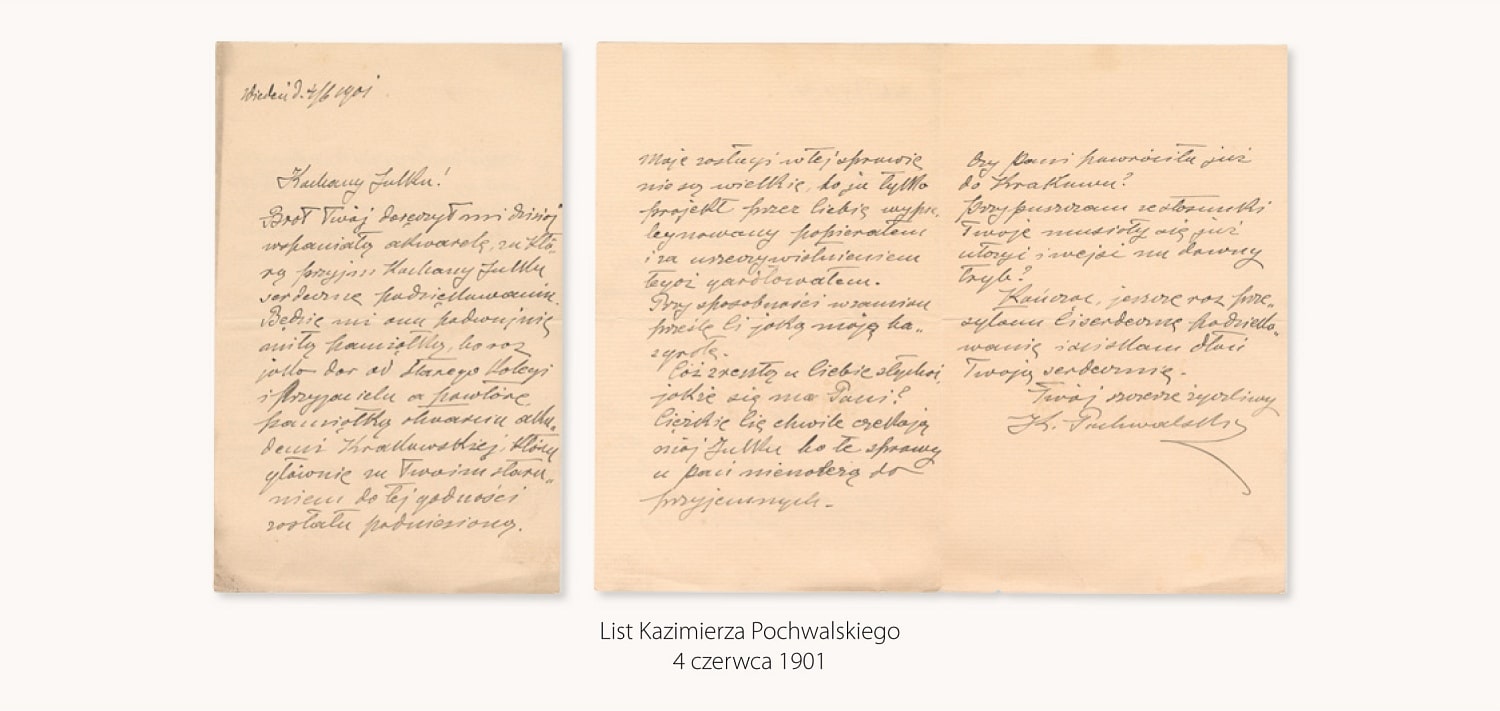 Wiedeń d. 4/6 1901
Kochany Julku!
Brat Twój doręczył mi dzisiaj
wspaniałą akwarelę, za któ-
rą przyjm Kochany Julku
serdeczne podziękowanie.
Będzie mi ona podwójnie
miłą pamiątką, bo raz
jako dar od starego Kolegi
i Przyjaciela a powtóre
pamiątką otwarcia aka-
demii Krakowskiej, która
głównie za Twoim stara-
niem do tej godności
została podniesioną.
Moje zasługi w tej sprawie
nie są wielkie, bo ja tylko
projekt przez Ciebie wypie-
lęgnowany popierałem
i za urzeczywistnieniem
tegoż gardłowałem.
Przy sposobności wzamian
prześlę Ci jaką moją ba-
zgrotę.
Cóż zresztą u Ciebie słychać,
jakże się ma Pani?
Ciężkie Cię chwile czekają
mój Julku bo te sprawy
u pań nienależą do
przyjemnych.
Czy Pani powróciła już
do Krakowa?
Przypuszczam ze stosunki
Twoje musiały się już
ułożyć i wejść na dawny
tryb?
Kończąc, jeszcze raz prze-
syłam Ci serdeczne podzięko-
wanie i ściskam dłoń
Twoją serdecznie.
Twój szczerze życzliwy
K. Pochwalski
List Kazimierza Pochwalskiego
4 czerwca 1901